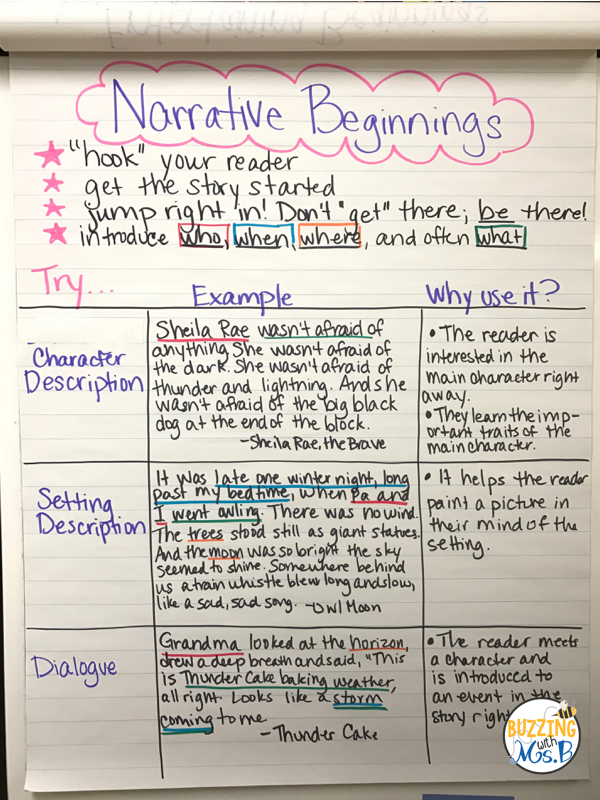 Narrative Beginnings
"hook" your reader
get the story started
jump right in! Don't "get" there; be there!
introduce who, when, where, and often what
Try...
Example
Why use it?
Character
Description
Sheila Rae wasn't afraid of
anything. She wasn't afraid of
the dark. She wasn't afraid of
thunder and lightning. And she
wasn't afraid of the big black
dog at the end of the block.
-Sheila Rae, the Brave
• The reader is
interested in the
main character right
away.
• They learn the imp-
ortant traits of the
main character.
Setting
Description
It was late one winter night, long
past my bedtime, when Pa and
I went owling. There was no wind.
The trees stood still as giant statues.
And the moon was so bright the sky
seemed to shine. Somewhere behind
us a train whistle blew long and slow,
like a sad, sad song. -Owl Moon
• It helps the reader
paint a picture in
their mind of the
setting.
Dialogue
Grandma looked at the horizon,
drew a deep breath and said, "This
is Thunder Cake baking weather,
all right. Looks like a storm
coming to me
-Thunder Cake
• The reader meets
a character and
is introduced to
an event in the
story right
BUZZING
with
Ms. B